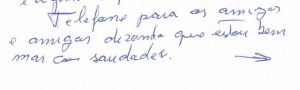 Telefone para os amigos
e amigas dizendo que estou bem
mas com saudades.